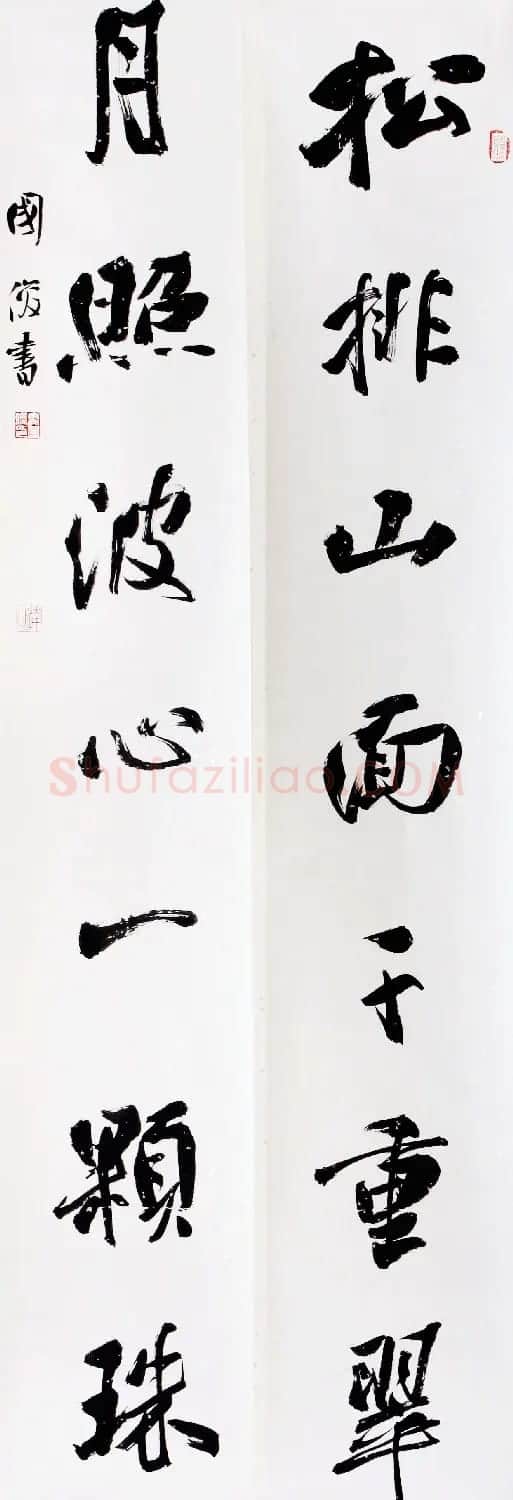 松排山面千重翠
月照波心一顆珠
國俊書
Shufaziliao.COM